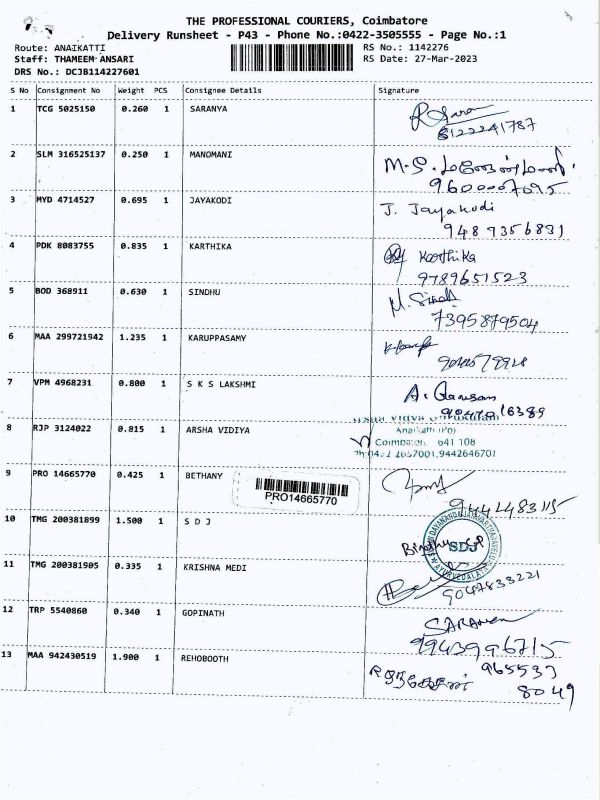 THE PROFESSIONAL COURIERS, Coimbatore
Delivery Runsheet - P43 - Phone No.:0422-3505555 - Page No.:1
Route: ANAIKATTI RS No.: 1142276
Staff: THAMEEM ANSARI RS Date: 27-Mar-2023
DRS No.: DCJB114227601
S No Consignment No Weight PCS Consignee Details Signature
1 TCG 5025150 0.260 1 SARANYA
8122241787
2 SLM 316525137 0.250 1 MANOMANI M.S.
9600007095
3 MYD 4714527 0.695 1 JAYAKODI J. Jayakodi
9487356831
4 PDK 8083755 0.835 1 KARTHIKA Karthika
9789651523
5 BOD 368911 0.630 1 SINDHU
7395879504
6 MAA 299721942 1.235 1 KARUPPASAMY
7 VPM 4968231 0.800 1 S K S LAKSHMI
8 RJP 3124022 0.815 1 ARSHA VIDIYA Anaikatti (Po)
Coimbatore 641 108
2657001,9442646701
9 PRO 14665770 0.425 1 BETHANY
PRO14665770
9442483115
10 TMG 200381899 1.500 1 S D J SDJ
11 TMG 200381905 0.335 1 KRISHNA MEDI
9047833221
12 TRP 5540860 0.340 1 GOPINATH
9943996715
13 MAA 942430519 1.900 1 REHOBOOTH 965537
8049